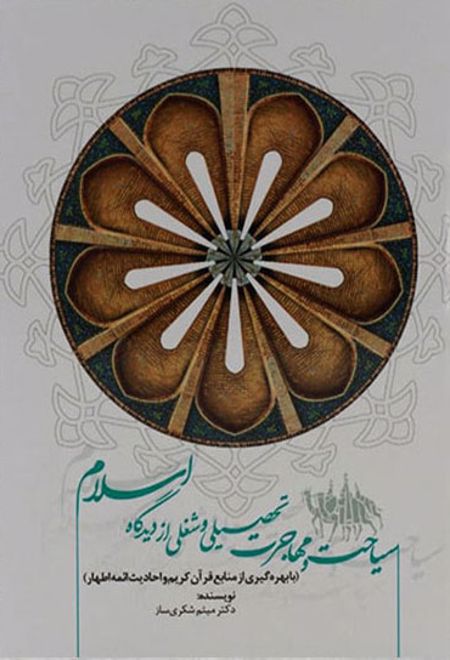 سیاحت و مهاجرت تحصیلی و شغلی از دیدگاه اسلام
(با بهره گیری از منابع قرآن کریم و احادیث ائمه اطهار)
نویسنده:
دکتر میثم شکری ساز